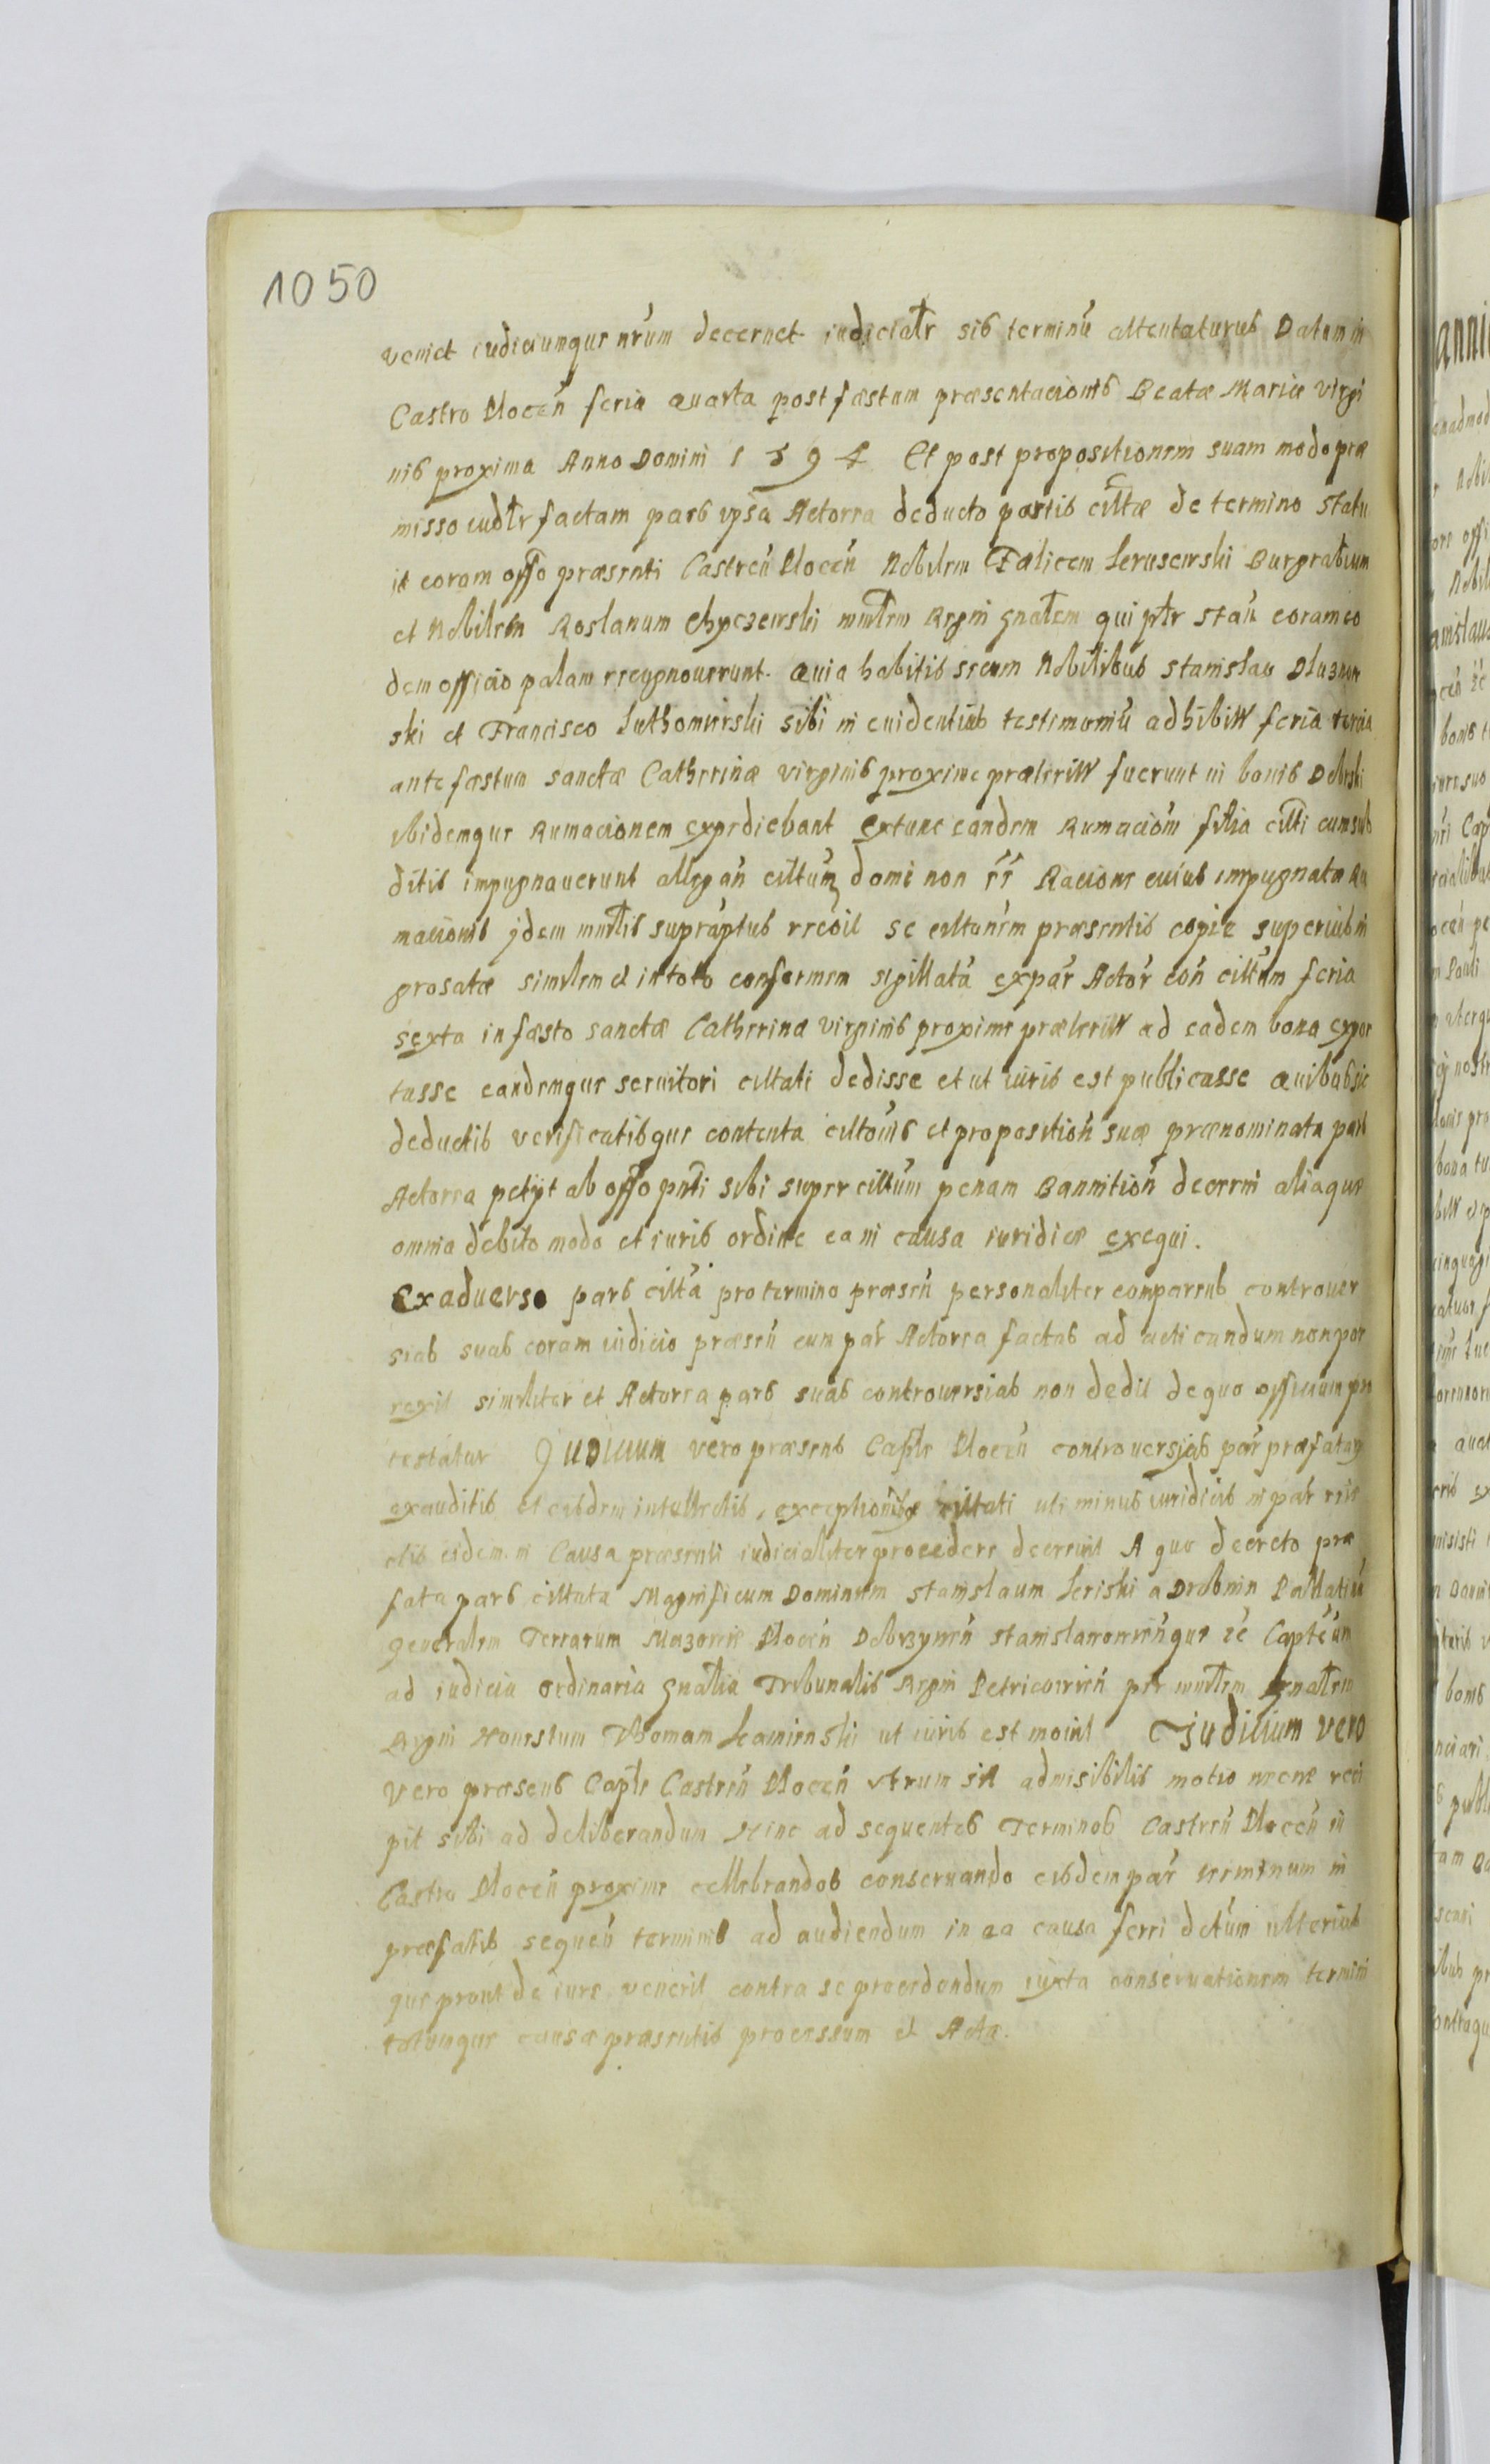 1050
veniet iudiciumque nrum decernet iudicialr sis terminū attentaturus Datum in
Castro Plocen feria quarta post fæstum præsentacionis Beatæ Mariæ virgi
nis proxima Anno Domini 1594 Et post propositionem suam modo præ
misso iudlr factam pars ypsa Actorea deducto partis citæ de termino statu
it coram offo præsenti Castren Plocen Nobilem Fælicem Burgrabium
et Nobilem Roslanum Chyczewski mnlrem Regni gnalem qui plr stan coram eo
dem officio palam recognouerunt. Quia habitis secum Nobilibus Stanislao
ski et Francisco Luthomirski sibi in euidentius testimoniū adhibitt feria tercia
ante fæstum sanctæ Catherinæ virginis proxime præteritt fuerunt in bonis
ibidemque Rumacionem expediebant extunc eandem Rumacióm filia citti cum sub
ditis impugnauerunt allegan cittum domi non Racione cuius impugnatæ Ru
macionis ydem mnlis supraptus recoil se cittanem præsentis copiæ superius in
grosatæ similem et in toto conformem sigillatā ex par Actor con cittum feria
sexta in fæsto sanctæ Catherinæ virginis proxime præteritt ad eadem bona expor
tasse eandemque seruitori cittati dedisse et ut iuris est publicasse Quibus sic
deductis verificatisque contenta cittonis et proposition suæ prænominata pars
Actorea petÿt ab offo pnti sibi super cittum penam Bannition decerni aliaque
omnia debito modo et iuris ordine ea in causa iuridicæ exequi.
Exaduerso pars citta pro termino præsen personaliter comparens controuer
sias suas coram iudicio præsen cum par Actorea factas ad acticandum non por
rexit similiter et Actorea pars suas controuersias non dedit de quo officium pro
testatur Judicium vero præsens Caple Plocen controuersÿs par præfatarum
exauditis et eisdem intellectis, cittati uti minus iuridicis in par
ctis eidem in Causa præsenti iudicialiter procedere decreuit A quo decreto præ
fata pars cittata Magnificum Dominum Stanislaum a Drobnin Pallatinū
generalem Terrarum Mazowiæ Plocen Dobrzynen zc Capteum
ad iudicia ordinaria gnalia Tribunalis Regni Petricowien per mnlrem gnalem
Regni Honestum Thomam Kamienski ut iuris est mouit Judicium vero
vero præsens Caple Castren Plocen vtrum sit admisibilis motio necne reci
pit sibi ad deliberandum Hinc ad sequentes Terminos Castren Plocen in
Castro Plocen proxime cellebrandos conseruando eisdem par terminum in
præfatis sequen terminis ad audiendum in ea causa ferri detum ulterius
que prout de iure venerit contra se procedendum iuxta conseruationem termini
totumque causæ præsentis processum et Acta.